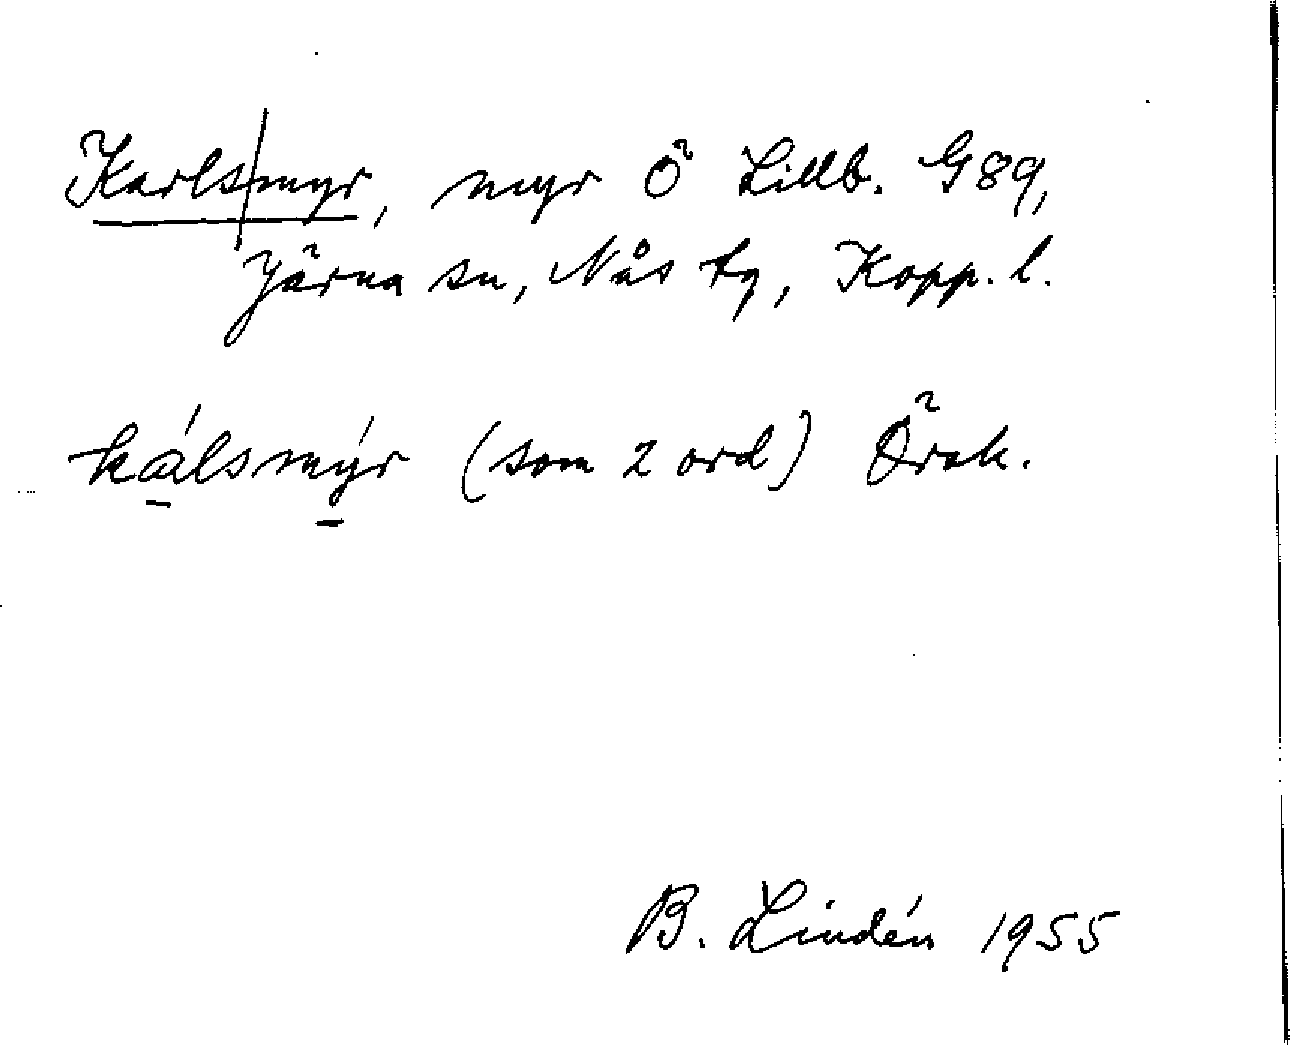 Karls|myr, myr Ö Lillb. G89,
Järna sn, Nås tg, Kopp. l.
kálsmýr (som 2 ord) Örok.
B. Lindén 1955